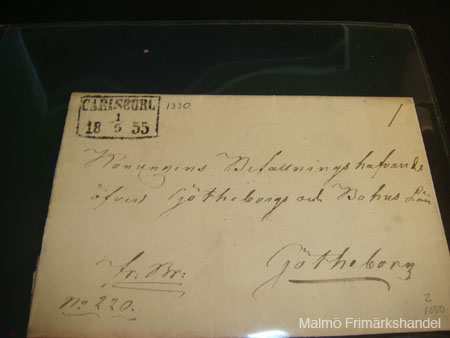 CARLSBORG 1330
1
18 5 55
Konungens Befallningshafvande
öfver Götheborgs och Bohus Län
Götheborg
Fr: Br:
no 220.
2
1000
Malmö Frimärkshandel